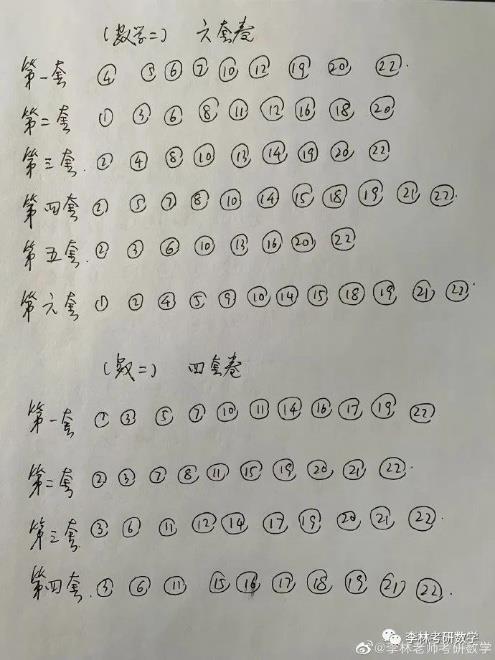 (数学二) 六套卷
第一套 ④ ⑤ ⑥ ⑦ ⑩ ⑫ ⑲ ⑳ ㉒.
第二套 ① ③ ⑥ ⑧ ⑪ ⑫ ⑯ ⑱ ⑳
第三套. ② ④ ⑧ ⑩ ⑬ ⑭ ⑲ ⑳ ㉒
第四套 ② ⑤ ⑦ ⑧ ⑩ ⑭ ⑮ ⑱ ⑲ ㉑ ㉒.
第五套. ② ③ ⑥ ⑩ ⑬ ⑯ ⑳ ㉒
第六套 ① ② ④ ⑤ ⑨ ⑩ ⑭ ⑮ ⑱ ⑲ ㉑ ㉒.
(数二) 四套卷
第一套 ① ③ ⑤ ⑦ ⑩ ⑪ ⑭ ⑯ ⑰ ⑲ ㉒
第二套 ② ③ ⑦ ⑧ ⑪ ⑮ ⑲ ⑳ ㉑ ㉒.
第三套. ③ ⑥ ⑪ ⑫ ⑭ ⑰ ⑲ ⑳ ㉑ ㉒.
第四套. ③ ⑥ ⑪ ⑮ ⑯ ⑰ ⑱ ⑲ ㉑ ㉒.
李林考研数学
@李林老师考研数学